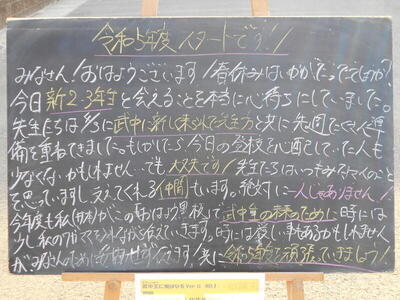 令和5年度スタートです!!
みなさん!おはようございます!春休みはいかがだったでしょうか?
今日 新2・3年生と会えることを本当に心待ちにしていました。
先生たちは 武中に新しく来られた先生方と共に先週たくさん準
備を重ねてきました。もしかしたら、今日の登校を心配していた人も
少なくないかもしれません…でも大丈夫です!先生たちはいつもみなさんのことを
思っていますし支えてくれる仲間もいます。絶対に一人じゃありません!
今年度も私がこの 黒板にて武中生の未来のために時には
少し私の 伝えています。時には厳しい事もあるかもしれません
がみなさんのために 共に令和5年度も頑張っていきましょう!